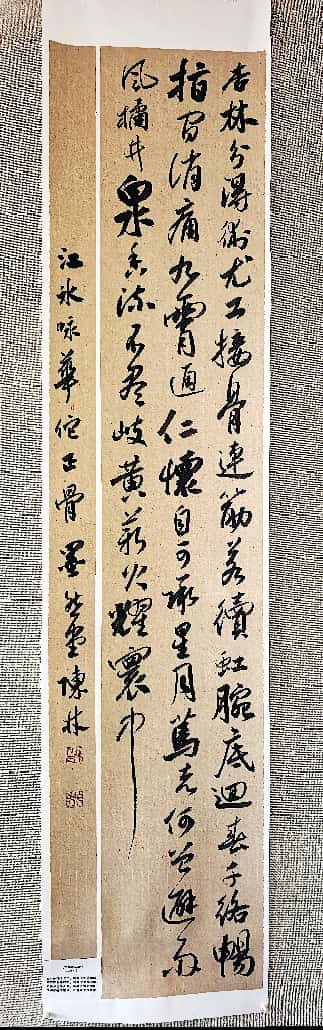 杏林分得術尤工接骨連筋若續虹腕底迴春千絡暢
指間消痛九霄通仁懷自可承星月篤志何曾避雨
風橘井泉香流不盡岐黃薪火耀寰中
江水咏華佗正骨墨堂陳林